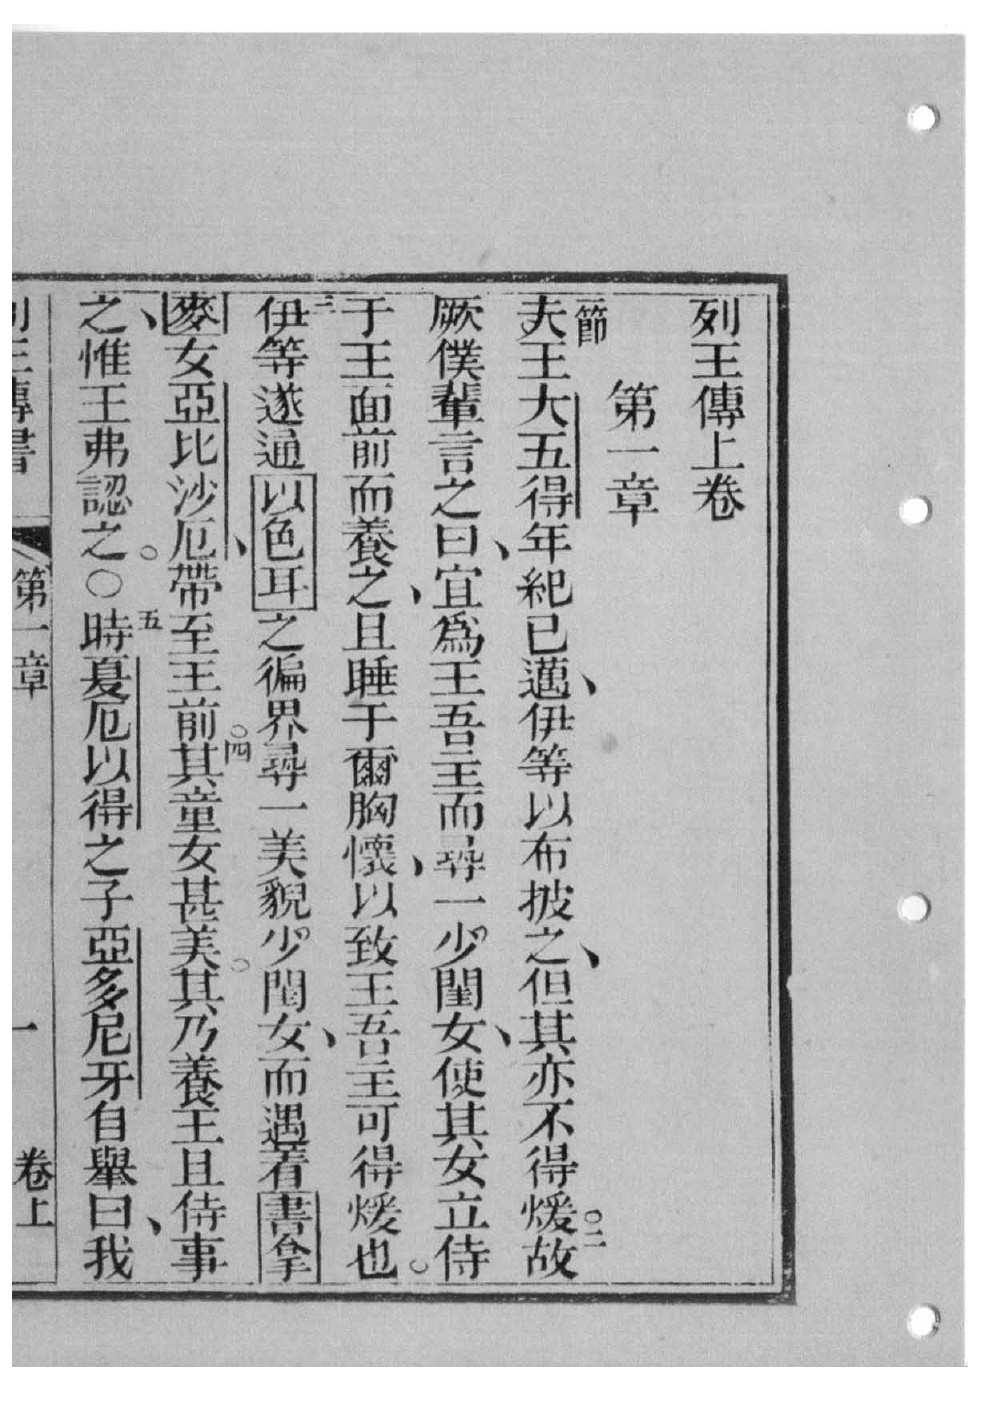 列王傳上卷
第一章
一節夫王大五得年紀已邁、伊等以布披之、但其亦不得煖。二故
厥僕輩言之曰、宜爲王吾主而尋一少閨女、使其女立侍
于王面前而養之、且睡于爾胸懷、以致王吾主可得煖也。
三伊等遂通以色耳之徧界尋一美貌少閨女、而遇着書拿
麥女亞比沙厄、帶至王前。四其童女甚美。其乃養王且侍事
之、惟王弗認之。○五時夏厄以得之子亞多尼牙自舉曰、我
列王傳書 第一章 一 卷上